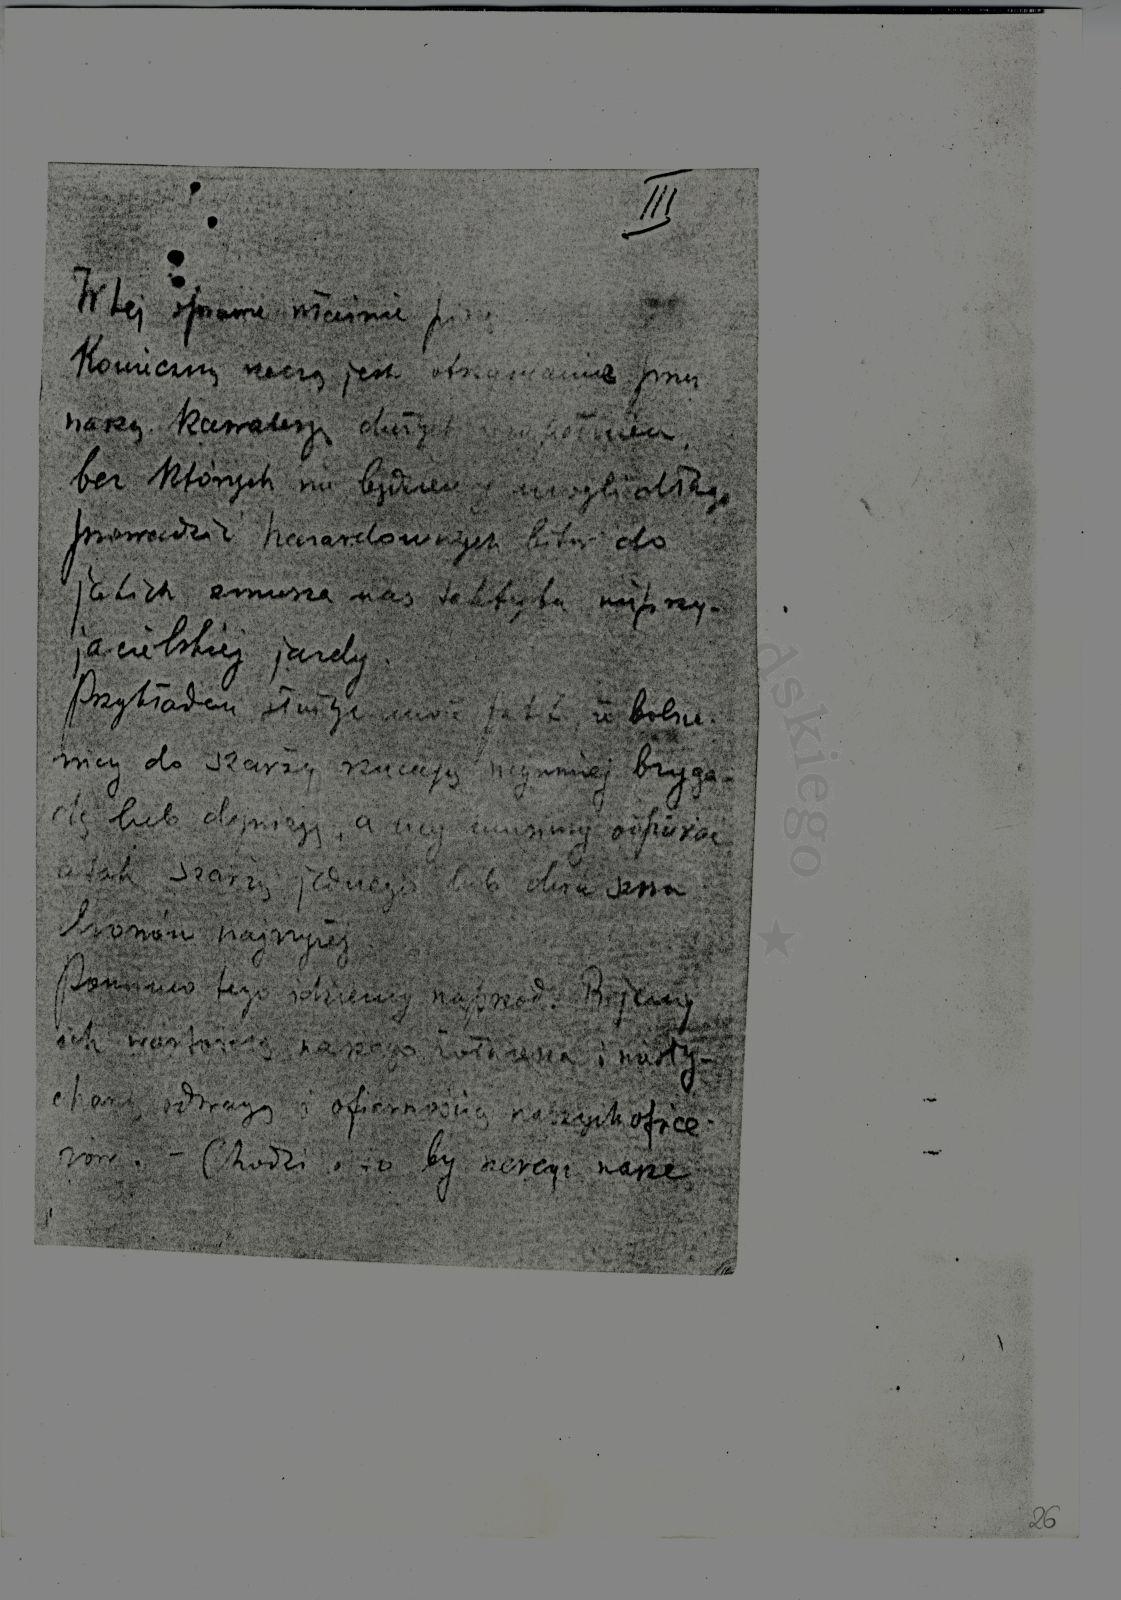 III
W tej sprawie właśnie piszę
Konieczną rzeczą jest otrzymanie przez
naszą Kawalerją dużych uzupełnień,
bez których nie będziemy mogli długo
prowadzić hazardownych bitw do
jakich zmusza nas taktyka nieprzy-
jacielskiej jazdy.
Przykładem służyć może fakt, iż bolsze-
wicy do szarży rzucają najmniej bryga-
dę lub dywizję, a my musimy odpierać
atak szarżą jednego lub dwu szwa
dronów najwyżej
Pomimo tego idziemy naprzód. Bijemy
ich wartością naszego żołnierza i niesły-
chaną odwagą i ofiarnością naszych ofice-
rów. - Chodzi o to by nasze
26
dskiego